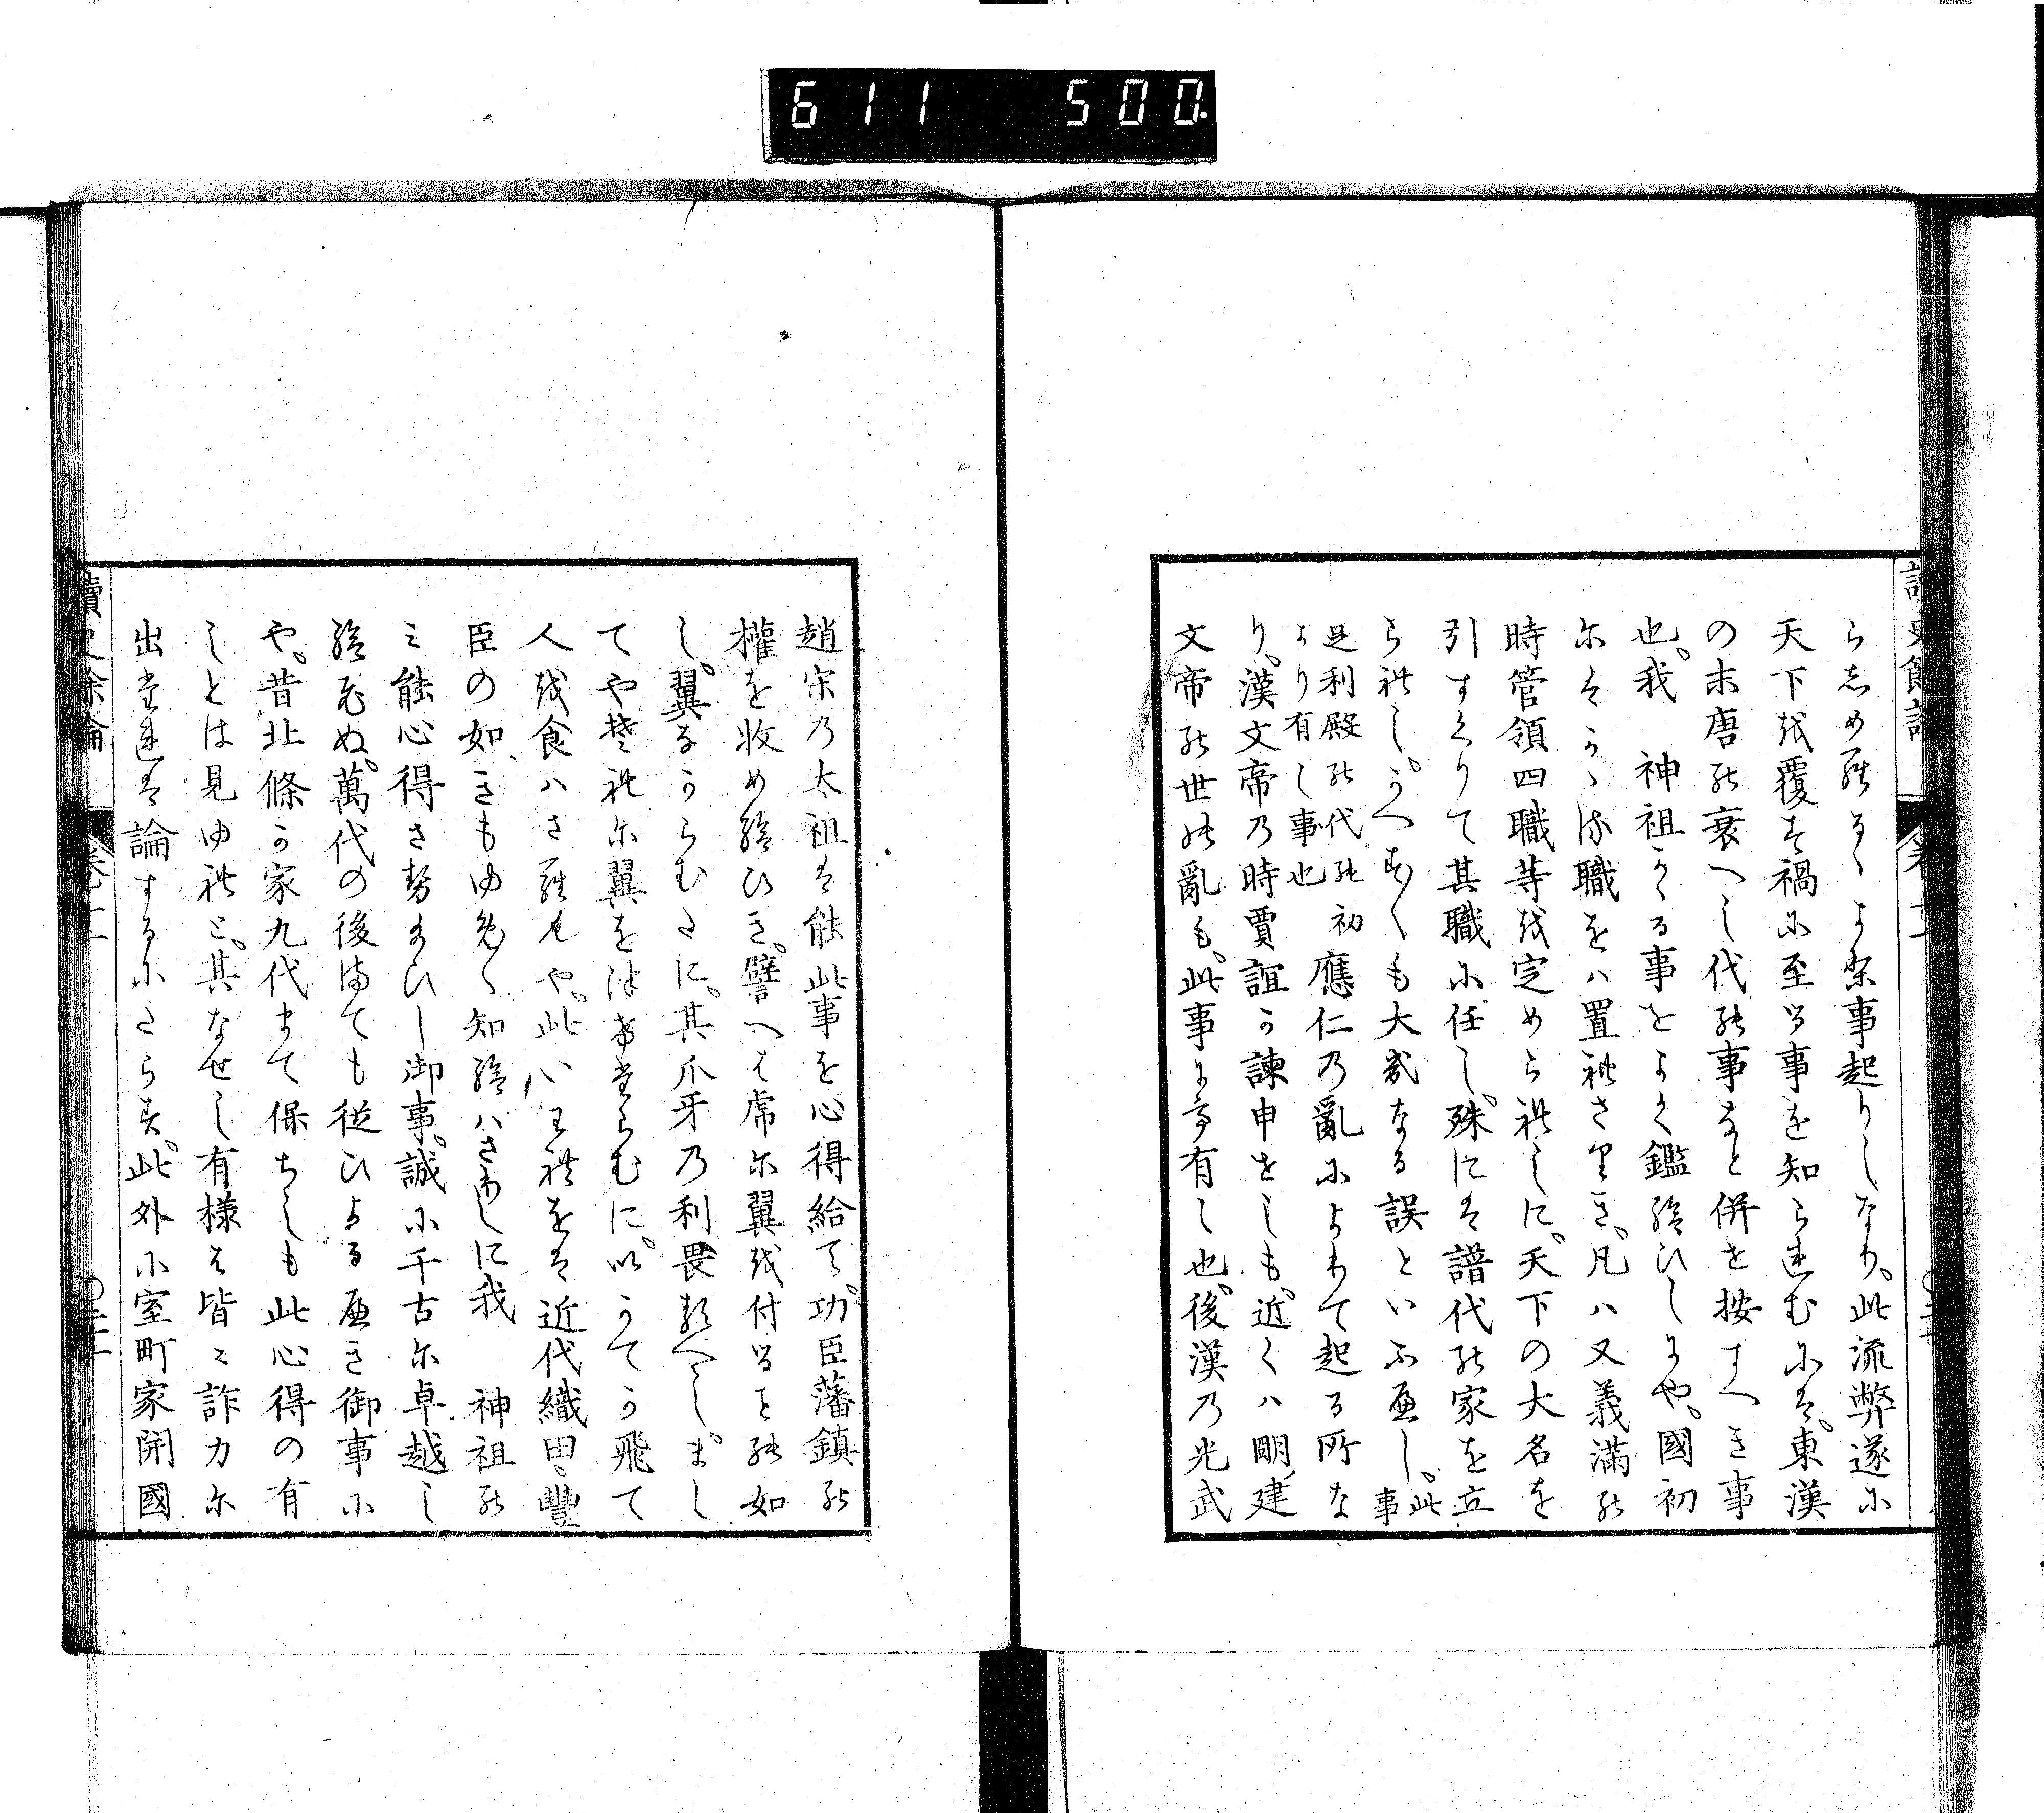 611 500.
らしめ難くよき事起りしなり。此流弊遂に
天下を覆す禍に至る事を知らせむには。東漢
の末唐の衰へし代の事なと併せ按すへき事
也。我　神祖かゝる事をよく鑑給ひしにや。國初
にはかゝる職をハ置れさりき。凡ハ又義滿の
時管領四職等を定められしに。天下の大名を
引すくりて其職に任し。殊には譜代の家を立
られし。かへすくも大成なる誤といふへし。此事
足利殿の代の初
より有し事也
應仁の亂によりて起る所な
り。漢文帝の時賈誼か諫申せしも。近くハ明建
文帝の世の亂も。此事にて有し也。後漢の光武
趙宋の太祖は能此事を心得給て。功臣藩鎮の
權を收め給ひき。譬へは虎に翼を付ると如
し。翼なからむたに。其爪牙の利畏るへし。まし
てや其れに翼を添たらむに。いかてか飛て
人を食ハさらむや。此ハこれをは近代織田豐
臣の如きもゆめく知給ハさりしに我　神祖の
ミ能心得させ給ひし御事。誠に千古に卓越し
給ひぬ。萬代の後まても從ひよるへき御事に
や。昔北條か家九代まて保ちしも此心得の有
しとは見ゆれと。其なせし有樣は皆〻詐力に
出たれは論するにたらす。此外に室町家開國
讀史餘論